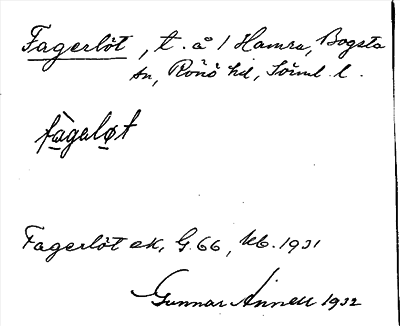 Fagerlöt, t. å 1 Hamra, Bogsta
sn, Rönö hd, Sörml. l.
fàgeḷøt
Fagerlöt ek, G. 66, kb. 1931
Gunnar Annell 1932